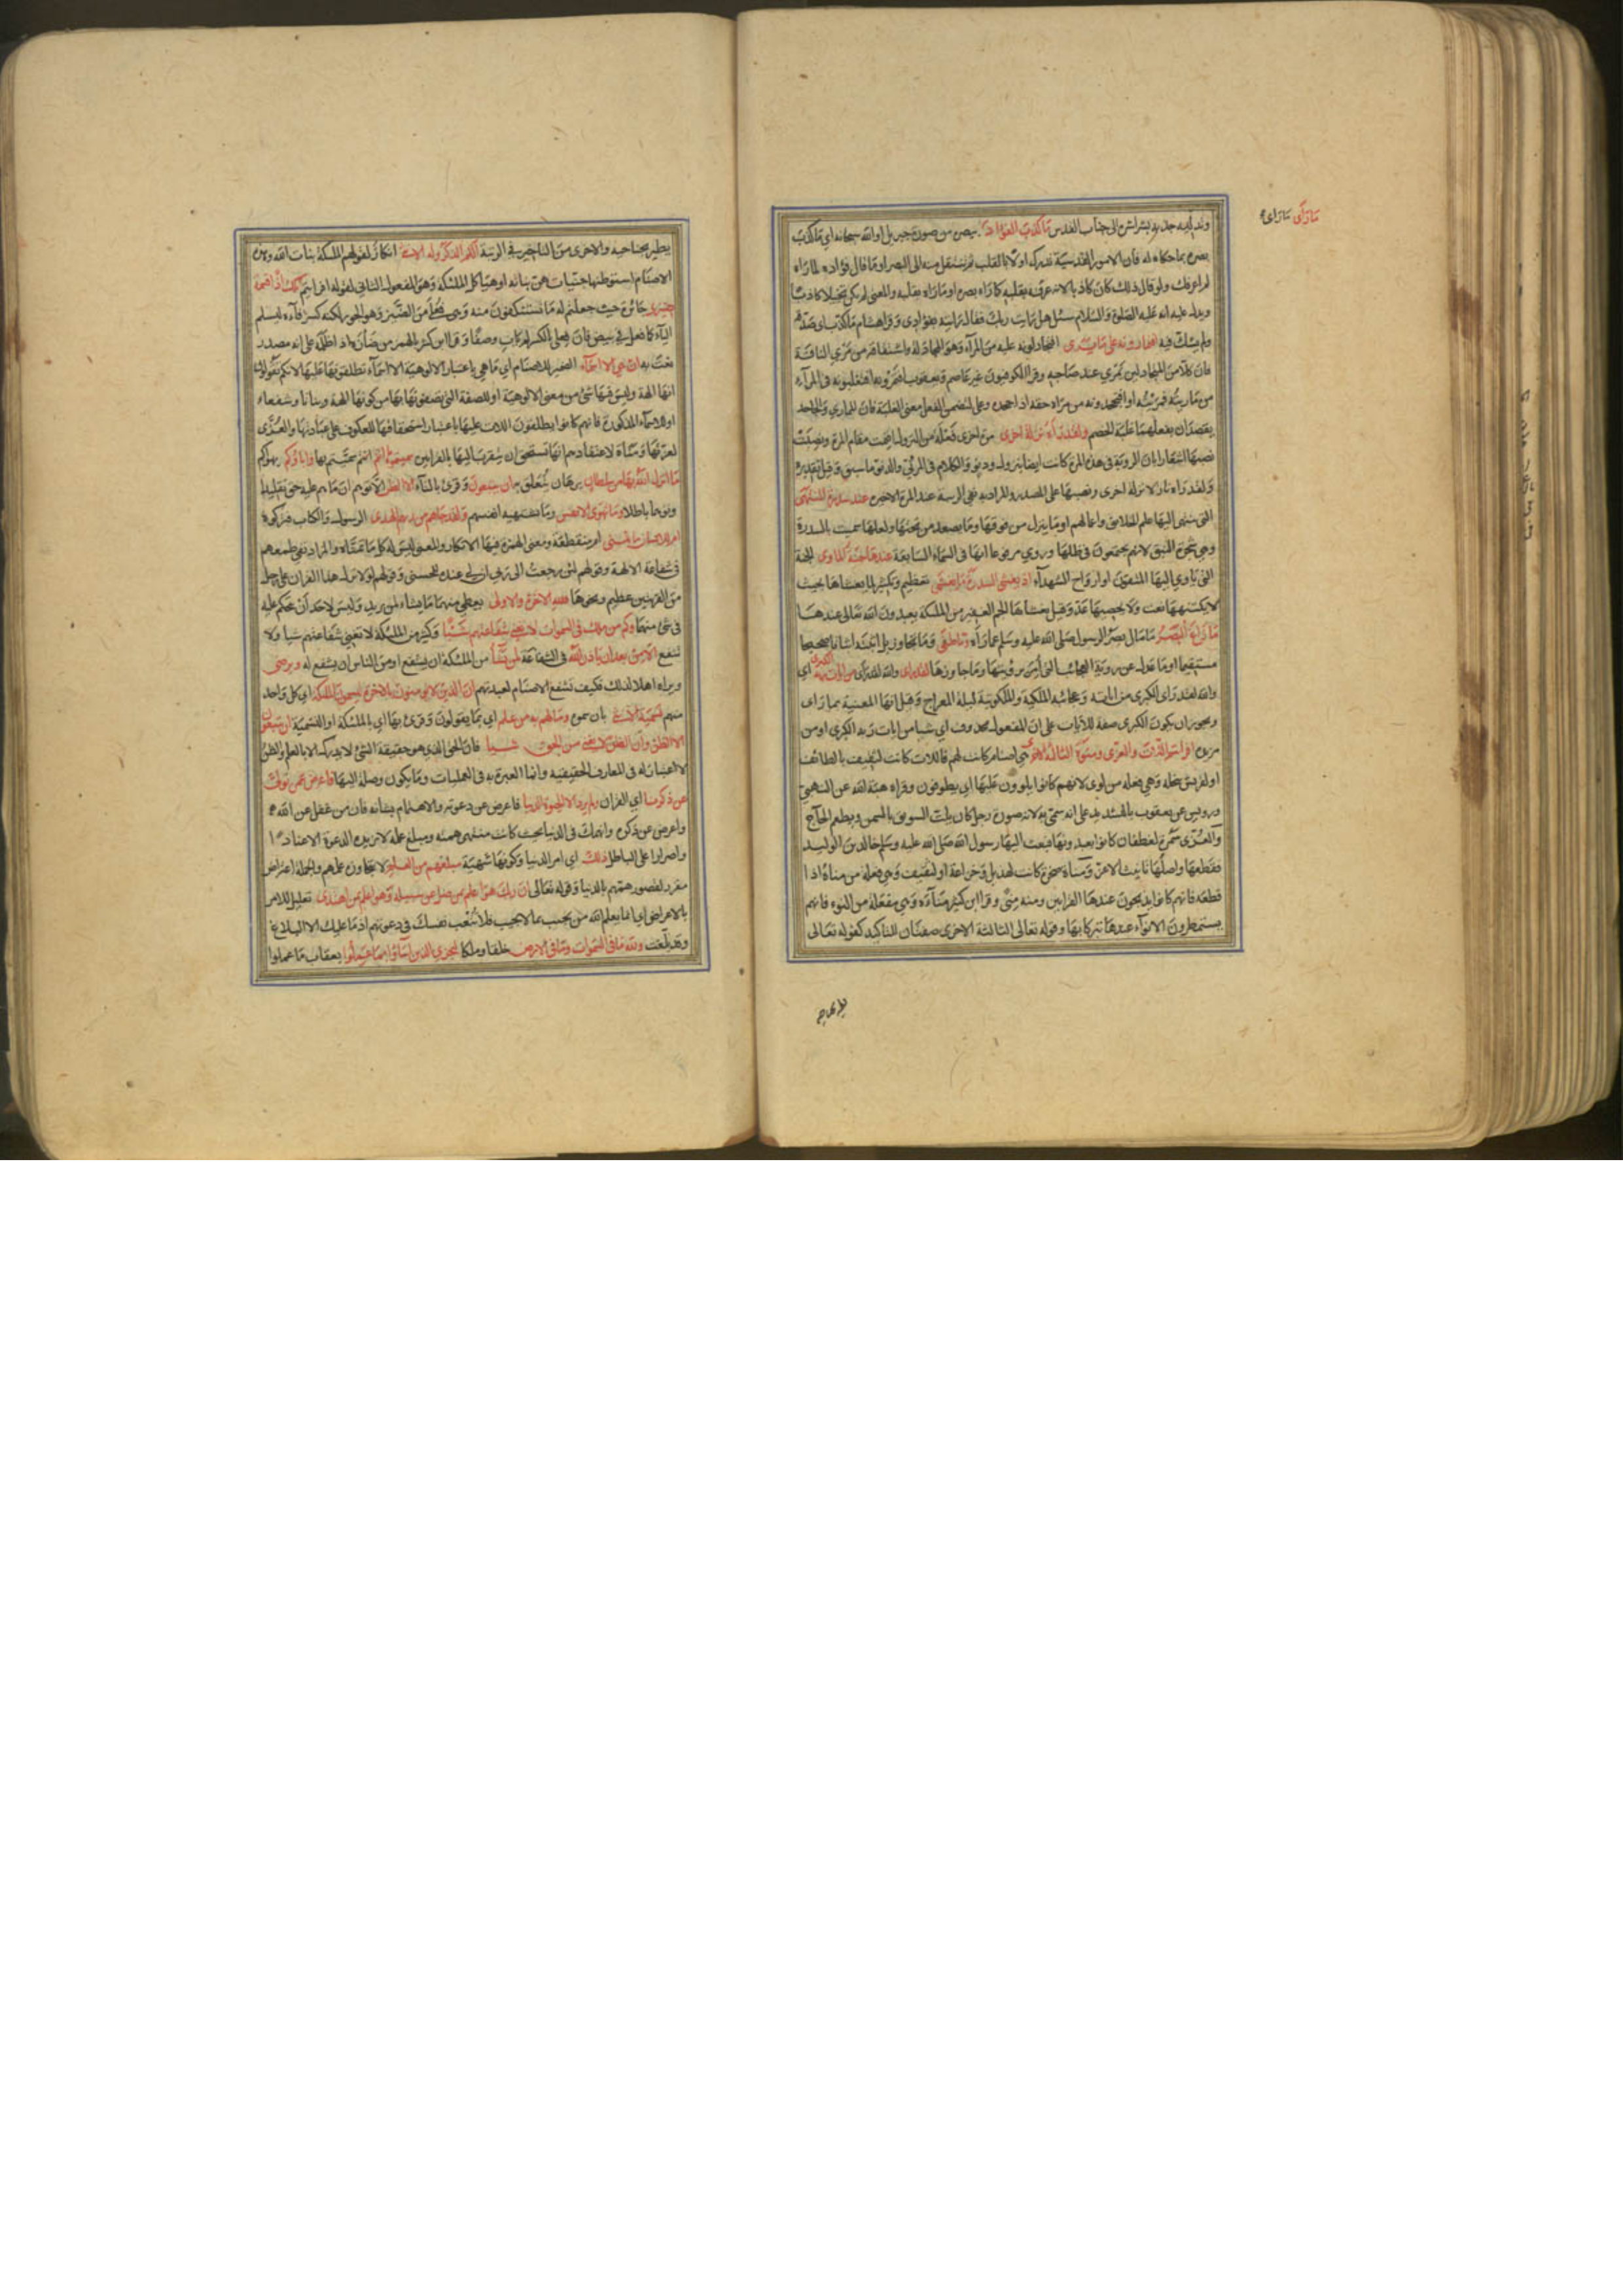 مَا رَأَى مَا رَاى
وتدليه جذبه بشراشره الى جناب القدس مَا كَذَبَ الفؤاد ببصره من صورة جبريل او الله سبحانه اى ما كذب
بصره بما حكاه له فان الامور القدسية تدرك اولا بالقلب ثم تنتقل منه الى البصر او ما قال فؤاده لما راه
لم اعرفك ولو قال ذلك كان كاذبا لانه عرفه بقلبه كما راه ببصره او ما راه بقلبه والمعنى لم يكن تخيلا كاذبا
ويدل عليه انه عليه الصلوة والسلام سئل هل رايت ربك فقال رايته بفؤادى وقرا هشام ما كذب اى صدقه
ولم يشك فيه افتمارونه على ما يرى افتجادلونه عليه من المرآء وهو المجادلة واشتقاقه من مرى الناقة
فان كلا من المتجادلين يمرى عند صاحبه وقرا الكوفيون غير عاصم ويعقوب افتمرونه افتغلبونه فى المرآء
من ماريته فمريته او افتجحدونه من مراه حقه اذا جحده وعلى لتضمين الفعل معنى الغلبة فان الممارى والجاحد
يقصدان بفعلهما غلبة الخصم ولقد رآه نزلة اخرى مرة اخرى فعلة من النزول اقيمت مقام المرة ونصبت
نصبها اشعارا بان الروية فى هذه المرة كانت ايضا بنزول ودنو والكلام فى المرئى والدنو ما سبق وقيل تقديره
ولقد راه نازلا نزلة اخرى ونصبها على المصدر والمراد به نفى الريبة عند المرة الاخيرة عند سدرة المنتهى
التى ينتهى اليها علم الخلائق واعمالهم او ما ينزل من فوقها وما يصعد من تحتها ولعلها سميت بالسدرة
وهى شجرة النبق لانهم يجتمعون فى ظلها وروى مرفوعا انها فى السماء السابعة عندها جنة الماوى الجنة
التى ياوى اليها المتقون او ارواح الشهدآء اذ يغشى السدرة ما يغشى تعظيم وتكثير لما يغشاها بحيث
لا يكتنهها نعت ولا يحصيها عد وقيل يغشاها الجم الغفير من الملئكة يعبدون الله تعالى عندها
مَا زاغ البصر ما مال بصر الرسول صلى الله عليه وسلم عما رآه وما طغى وما تجاوزه بل اثبته اثباتا صحيحا
مستيقنا او ما عدل عن روية العجائب التى امر برؤيتها وما جاوزها لقد راى من ايات ربه الكبرى اى
والله لقد راى الكبرى من اياته وعجائبه الملكية والملكوتية ليلة المعراج وقيل انها المعنية بما راى
ويجوز ان يكون الكبرى صفة للايات على ان المفعول محذوف اى شيا من ايات ربه الكبرى او من
مزيدة افرايتم اللات والعزى ومنوة الثالثة الاخرى هى اصنام كانت لهم فاللات كانت لثقيف بالطائف
او لقريش بنخلة وهى فعلة من لوى لانهم كانوا يلوون عليها اى يطوفون وقراه هبة الله عن البزى
ورويس عن يعقوب بالتشديد على انه سمى به لانه صورة رجل كان يلت السويق بالسمن ويطعم الحآج
والعزى سمرة لغطفان كانوا يعبدونها فبعث اليها رسول الله صلى الله عليه وسلم خالد بن الوليد
فقطعها واصلها تانيث الاعز ومناة صخرة كانت لهذيل وخزاعة او لثقيف وهى فعلة من مناه اذا
قطعه فانهم كانوا يذبحون عندها القرابين ومنه منى وقرا ابن كثير منآءة وهى مفعلة من النوء فانهم
يستمطرون الانوآء عندها تبركا بها وقوله تعالى الثالثة الاخرى صفتان للتاكيد كقوله تعالى
يطير بجناحيه
يطير بجناحيه والاخرى من التاخير فى الرتبة الكم الذكر وله الانثى انكار لقولهم الملئكة بنات الله وهذه
الاصنام استوطنها جنيات هن بناته او هياكل الملئكة وهو المفعول الثانى لقوله افرايتم تلك اذا قسمة
ضيزى جائرة حيث جعلتم له ما تستنكفون منه وهى فعلى من الضيز وهو الجور لكنه كسر فآءه لتسلم
اليآء كما فعل فى بيض فان فعلى بالكسر لم يات وصفا وقرا ابن كثير بالهمز من ضأزه اذا ظلمه على انه مصدر
نعت به ان هى الا اسمآء الضمير للاصنام اى ما هى باعتبار الالوهية الا اسمآء تطلقونها عليها لانكم تقولون
انها الهة وليس فيها شئ من معنى الالوهية او للصفة التى تصفونها بها من كونها الهة وبناتا وشفعاء
او للاسمآء المذكورة فانهم كانوا يطلقون اللات عليها باعتبار استحقاقها للعكوف على عبادتها والعزى
لعزتها ومناة لاعتقادهم انها تستحق ان يتقرب اليها بالقرابين سميتموها انتم انتم سميتم بها واباؤكم بهواكم
ما انزل الله بها من سلطان برهان تتعلق به ان يتبعون وقرى بالتآء الا الظن الا توهم ان ما هم عليه حق تقليدا
وتوهما باطلا وما تهوى الانفس وما تشتهيه انفسهم ولقد جاهم من ربهم الهدى الرسول والكتاب فتركوه
ام للانسان ما تمنى ام منقطعة ومعنى الهمزة فيها الانكار والمعنى ليس له كل ما تمناه والمراد نفى طمعهم
فى شفاعة الالهة وقولهم لئن رجعت الى ربى ان لى عنده للحسنى وقولهم لولا نزل هذا القران على رجل
من القريتين عظيم ونحوها فلله الاخرة والاولى يعطى منهما ما يشاء لمن يريد وليس لاحد ان يتحكم عليه
فى شئ منهما وكم من ملك فى السموات لا تغنى شفاعتهم شيئا وكثير من الملئكة لا تغنى شفاعتهم شيا ولا
تنفع الا من بعد ان ياذن الله فى الشفاعة لمن يشآ من الملئكة ان يشفع او من الناس ان يشفع له ويرضى
ويراه اهلا لذلك فكيف تشفع الاصنام لعبدتهم ان الذين لا يؤمنون بالاخرة ليسمون الملئكة اى كل واحد
منهم تسمية الانثى بان سموه وما لهم به من علم اى بما يقولون وقرئ بها اى بالملئكة او التسمية ان يتبعون
الا الظن وان الظن لا يغنى من الحق شيا فان الحق الذى هو حقيقة الشئ لا يدرك الا بالعلم والظن
لا اعتبار له فى المعارف الحقيقية وانما العبرة به فى العمليات وما يكون وصلة اليها فاعرض عمن تولى
عن ذكرنا اى القران ولم يرد الا الحيوة الدنيا فاعرض عن دعوته والاهتمام بشانه فان من غفل عن الله
واعرض عن ذكره وانهمك فى الدنيا بحيث كانت منتهى همته ومبلغ علمه لا تزيده الدعوة الا عنادا
واصرارا على الباطل ذلك اى امر الدنيا وكونها شهية مبلغهم من العلم لا يتجاوزه علمهم والجملة اعتراض
مقرر لقصور همتهم بالدنيا وقوله تعالى ان ربك هو اعلم بمن ضل عن سبيله وهو اعلم بمن اهتدى تعليل للامر
بالاعراض اى انما يعلم الله من يجيب ممن لا يجيب فلا تتعب نفسك فى دعوتهم اذ ما عليك الا البلاغ
وقد بلغت ولله ما فى السموات وما فى الارض خلقا وملكا ليجزى الذين اساؤا بما عملوا بعقاب ما عملوا